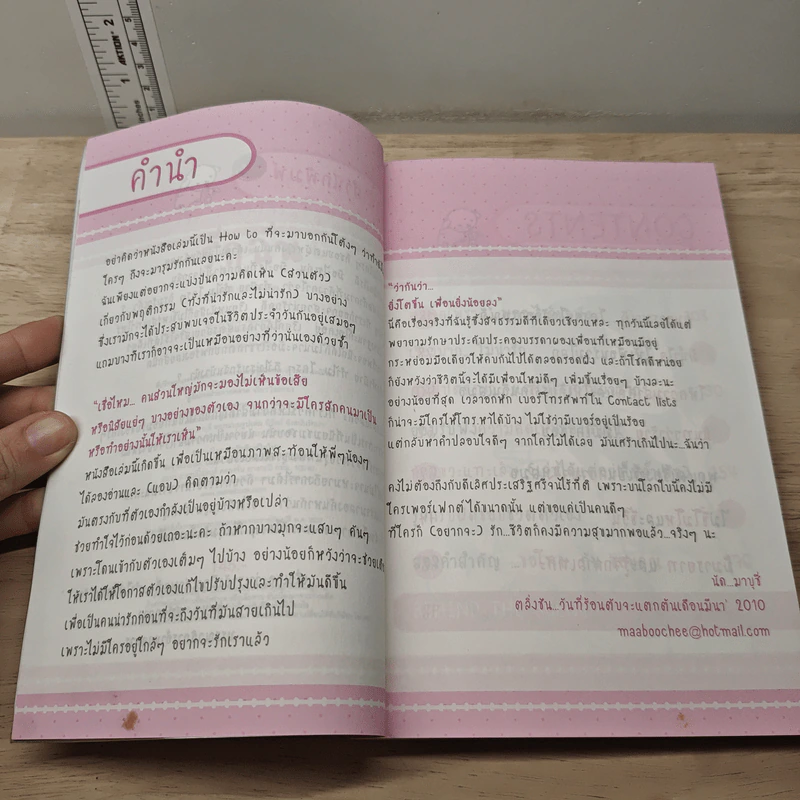 คำนำ
อย่าคิดว่าหนังสือเล่มนี้เป็น How to ที่จะมาบอกกันโต้งๆ ว่าทำ
ใครๆ ถึงจะมารุมรักกันเลยนะคะ
ฉันเพียงแต่อยากจะแบ่งปันความคิดเห็น (ส่วนตัว)
เกี่ยวกับพฤติกรรม (ทั้งที่น่ารักและไม่น่ารัก) บางอย่าง
ซึ่งเรามักจะได้ประสบพบเจอในชีวิตประจำวันกันอยู่เสมอๆ
แถมบางทีเราก็อาจจะเป็นเหมือนอย่างที่ว่านั่นเองด้วยซ้ำ
"เชื่อไหม... คนส่วนใหญ่มักจะมองไม่เห็นข้อเสีย
หรือนิสัยแย่ๆ บางอย่างของตัวเอง จนกว่าจะมีใครสักคนมาเป็น
หรือทำอย่างนั้นให้เราเห็น"
หนังสือเล่มนี้เกิดขึ้น เพื่อเป็นเหมือนภาพสะท้อนให้พี่ๆน้องๆ
ได้ลองอ่านและ (แอบ) คิดตามว่า
มันตรงกับที่ตัวเองกำลังเป็นอยู่บ้างหรือเปล่า
ช่วยทำใจไว้ก่อนด้วยเถอะนะคะ ถ้าหากบางมุกจะแสบๆ คันๆ
เพราะโดนเข้ากับตัวเองเต็มๆ ไปบ้าง อย่างน้อยก็หวังว่าจะช่วย
ให้เราได้ให้โอกาสตัวเองแก้ไขปรับปรุงและทำให้มันดีขึ้น
เพื่อเป็นคนน่ารักก่อนที่จะถึงวันที่มันสายเกินไป
เพราะไม่มีใครอยู่ใกล้ๆ อยากจะรักเราแล้ว
"ว่ากันว่า...
ยิ่งโตขึ้น เพื่อนยิ่งน้อยลง"
นี่คือเรื่องจริงที่ฉันรู้ซึ้งสัจธรรมดีทีเดียวเชียวแหละ ทุกวันนี้เลยได้แต่
พยายามรักษาประคับประคองบรรดาผองเพื่อนที่เหมือนมีอยู่
กระหย่อมมือเดียวให้คบกันไปได้ตลอดรอดฝั่ง และถ้าโชคดีหน่อย
ก็ยังหวังว่าชีวิตนี้จะได้มีเพื่อนใหม่ดีๆ เพิ่มขึ้นเรื่อยๆ บ้างละนะ
อย่างน้อยที่สุด เวลาอกหัก เบอร์โทรศัพท์ใน Contact lists
ก็น่าจะมีใครให้โทร.หาได้บ้าง ไม่ใช่ว่ามีเบอร์อยู่เป็นร้อย
แต่กลับหาคำปลอบใจดีๆ จากใครไม่ได้เลย มันเศร้าเกินไปนะ..ฉันว่า
คงไม่ต้องถึงกับดีเลิศประเสริฐศรีจนไร้ที่ติ เพราะบนโลกใบนี้คงไม่มี
ใครเพอร์เฟกต์ได้ขนาดนั้น แต่ขอแค่เป็นคนดีๆ
ที่ใครก็ (อยากจะ) รัก...ชีวิตก็คงมีความสุขมากพอแล้ว...จริงๆ นะ
นัด...มาบุชี่
ตลิ่งชัน...วันที่ร้อนตับจะแตกต้นเดือนมีนา' 2010
maaboochee@hotmail.com
AKTION